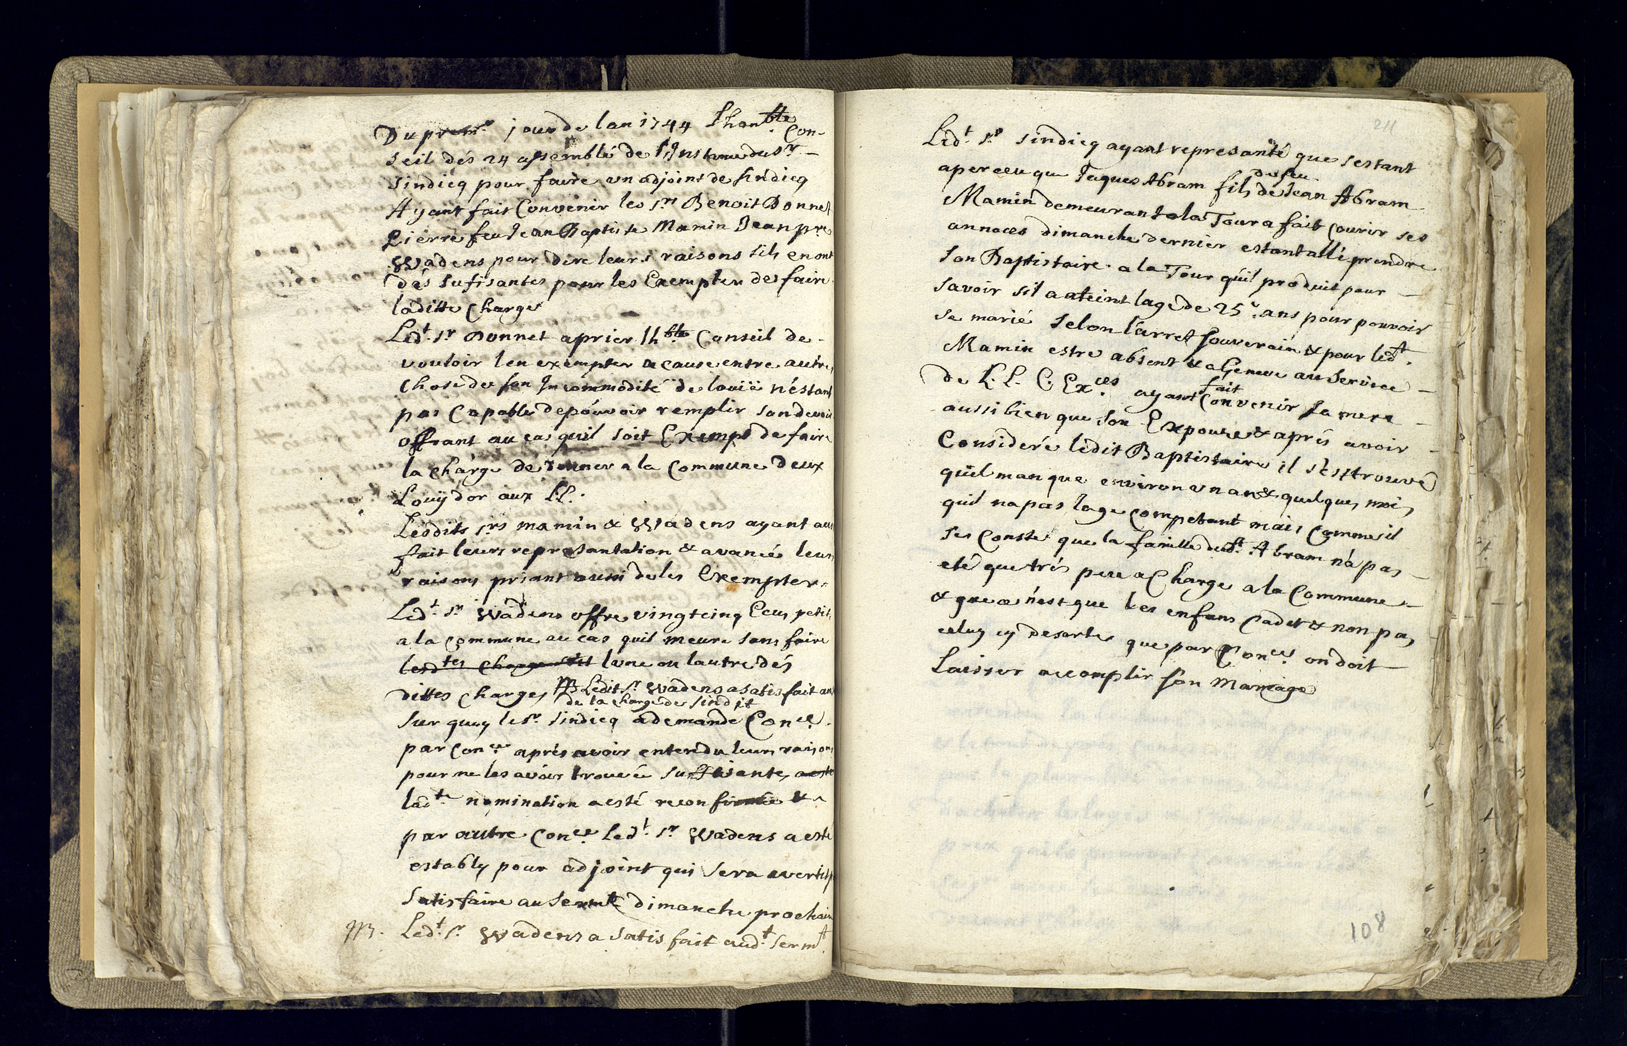 Du prem.r jour de lan 1744 Lhon.ble Con-
seil dés 24 assemblé de l'Instance du S.r
Sindicq pour faire un adjoint de sindicq
Ayant fait Convenir les S.rs Benoit Bonnet
Pierre feu Jean Baptiste Mamin Jean p.re
Wadens pour dire leurs raisons sils en ont
dés sufisantes pour les Exempter de faire
laditte Charge
Led.t S.r Bonnet a prier lh.ble Conseil de
vouloir len exempter a cause entre autre
Chose de son Incommodité de louïe n'éstant
pas Capable de póuvoir remplir son devoir
offrant au cas quil soit Exempt de faire
la charge de donner a la Commune Deux
Louÿ dor aux L.L.
Lesdits S.rs mamin & Wadens ayant au
fait leurs represantation & avancé leurs
raisons priant aussi de les Exempter.
Led.t S.r Wadens offre vingt cinq Ecus petit
a la commune au cas quil meure sans faire
lesd.tes Charge lune ou lautre dés
dittes Charges NB Ledit S.r Wadens a satisfait au
de la charge de sindit
Sur quoy le S.r Sindicq a demande Con.ce
par Con.ce aprés avoir entendu leurs raisons
pour ne les avoir trouvée suffisantes a esté
lad.te nomination a esté reconfirmée &
par autre Con.ce Led.t S.r Wadens a esté
estably pour adjoint qui sera avertit
Satisfaire au Serm.t dimanche prochain
NB. Led.t S.r Wadens a satisfait aud.t Serm.t
211
Led.t S.r Sindicq ayant represanté que sestant
de feu
aperceu que Jaques Abram fils de Jean Abram
Mamin demeurant a la Tour a fait courir ses
annoces dimanche dernier estant allé prendre
son Baptistaire a la Tour quil produit pour
savoir sil a atteint lage de 25 ans pour pouvoir
se marié selon larret souverain & pour led.t
Mamin estre absent & a Geneve au Service
fait
de L.L. E.Ex.ces ayant Convenir sa mere
aussi bien que son Expouse & aprés avoir
Consideré ledit Baptistaire il s'est trouvé
quil manque environ un an & quelques mois
quil na pas lage competant mais comme il
ses Consté que la famille dud.t Abram na pas
eté que trés peu a Charge a la Commune
& que ce n'est que les enfans Cadet & non pas
celuy cy desorte que par Con.ce on doit
Laisser accomplir son Mariage
108